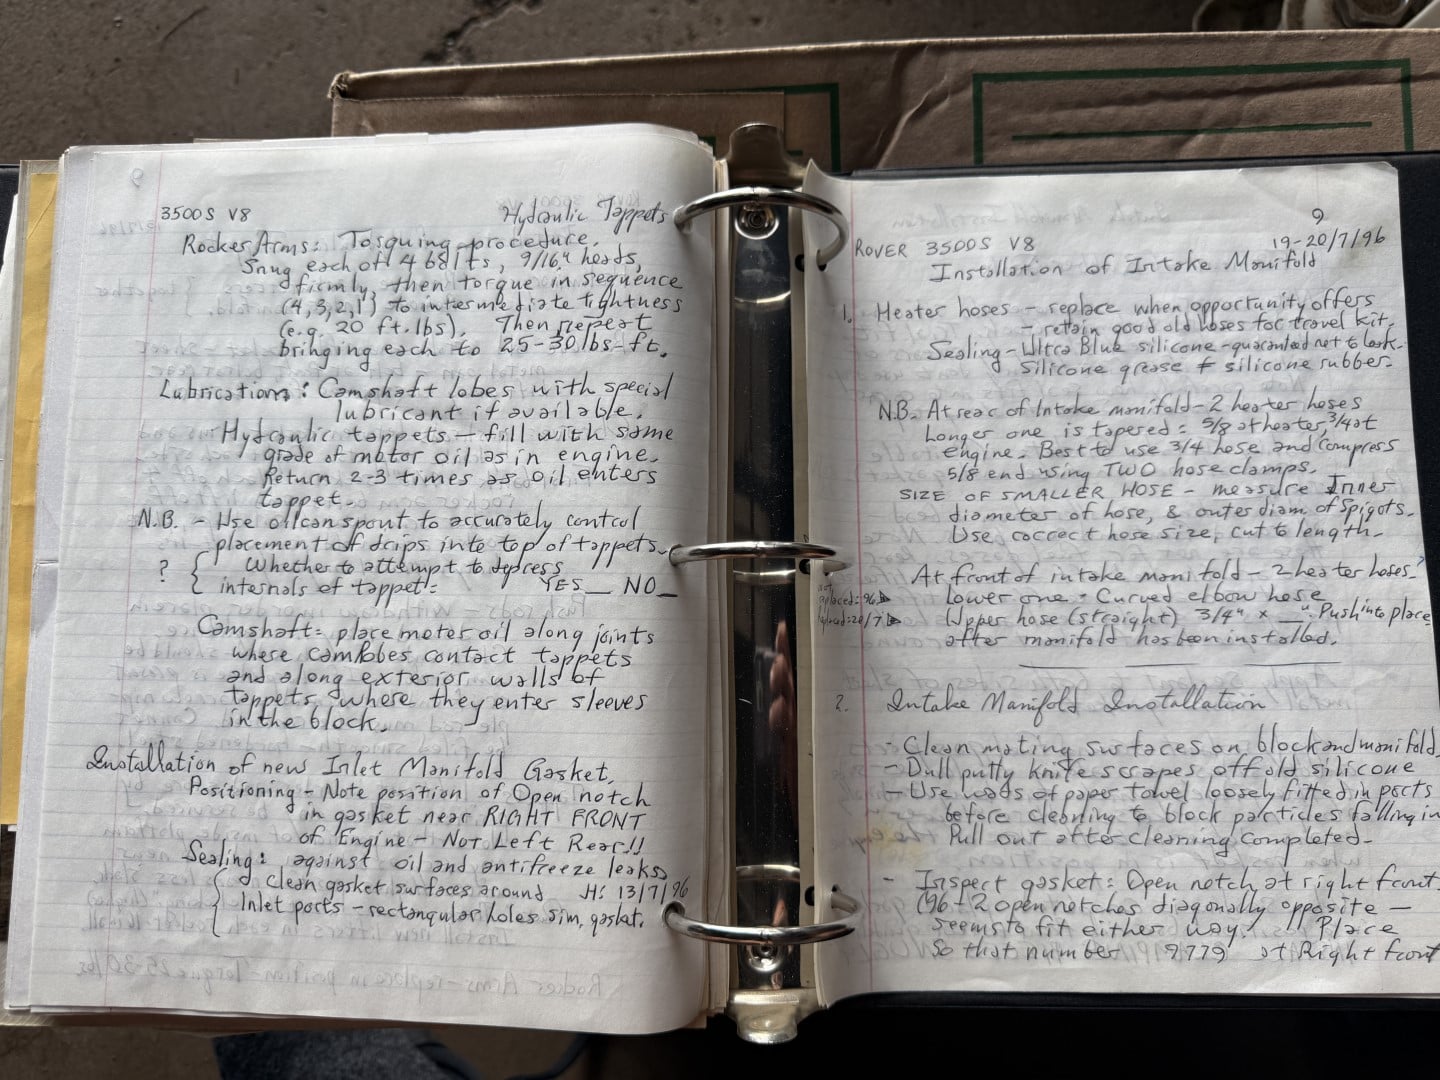 3500S V8 Hydraulic Tappets
Rocker Arms: Torquing procedure.
Snug each of 4 bolts, 9/16" heads,
firmly, then torque in sequence
(4,3,2,1) to intermediate tightness
(e.g. 20 ft.lbs). Then repeat
bringing each to 25-30 lbs-ft.
Lubrication: Camshaft lobes with special
lubricant if available.
Hydraulic tappets – fill with same
grade of motor oil as in engine.
Return 2-3 times as oil enters
tappet.
N.B. - Use oilcan spout to accurately control
placement of drips into top of tappets.
? { Whether to attempt to depress
internals of tappet: YES__ NO__
Camshaft: place motor oil along joints
where cam lobes contact tappets
and along exterior walls of
tappets, where they enter sleeves
in the block.
Installation of new Inlet Manifold Gasket.
Positioning - Note position of Open notch
in gasket near RIGHT FRONT
of Engine – Not Left Rear!!
Sealing: against oil and antifreeze leaks
{ Clean gasket surfaces around H: 13/7/96
Inlet ports - rectangular holes sim. gasket.
9
ROVER 3500S V8 19-20/7/96
Installation of Intake Manifold
1. Heater hoses – replace when opportunity offers
- retain good old hoses for travel kit.
Sealing - Ultra Blue silicone - guaranteed not to leak.
Silicone grease ≠ silicone rubber.
N.B. At rear of Intake manifold - 2 heater hoses
Longer one is tapered: 5/8 at heater, 3/4 at
engine. Best to use 3/4 hose and compress
5/8 end using TWO hose clamps.
SIZE OF SMALLER HOSE - measure Inner
diameter of hose, & outer diam of Spigots.
Use correct hose size, cut to length.
At front of intake manifold - 2 heater hoses.
Lower one: Curved elbow hose
Upper hose (straight) 3/4" x __". Push into place
after manifold has been installed.
2. Intake Manifold Installation
- Clean mating surfaces on block and manifold
- Dull putty knife scrapes off old silicone
- Use wads of paper towel loosely fitted in ports
before cleaning to block particles falling in
Pull out after cleaning completed.
- Inspect gasket: Open notch at right front
(96 - 2 open notches diagonally opposite –
seems to fit either way. Place
So that number 9779 at Right front